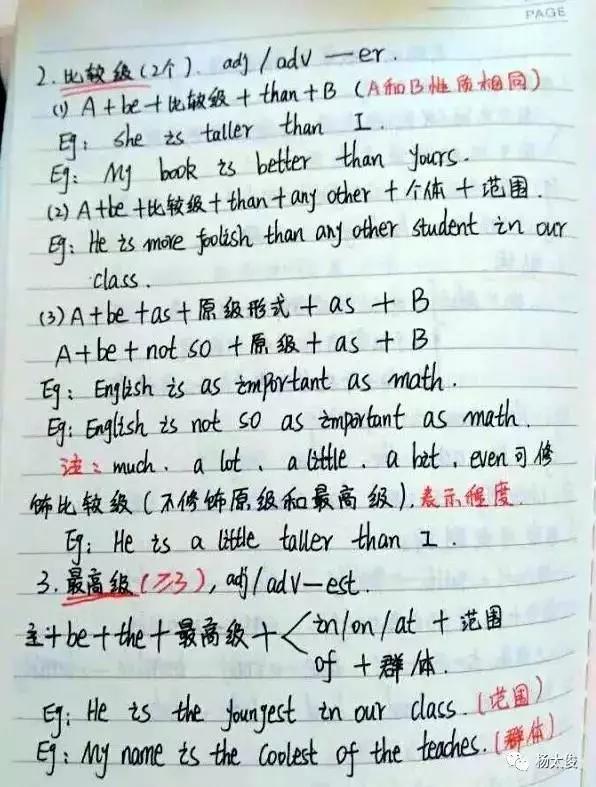 PAGE
2. 比较级(2个). adj/adv — er.
(1) A + be + 比较级 + than + B (A和B性质相同)
Eg: she is taller than I.
Eg: My book is better than yours.
(2) A+be+比较级+than+any other+个体+范围.
Eg: He is more foolish than any other student in our
class.
(3) A+be+as+原级形式+as+B
A+be+not so+原级+as+B
Eg: English is as important as math.
Eg: English is not so as important as math.
注: much. a lot. a little. a bit. even可修
饰比较级(不修饰原级和最高级).表示程度.
Eg: He is a little taller than I.
3. 最高级(≥3), adj/adv—est.
主+be+the+最高级+<in/on/at+范围
of+群体.
Eg: He is the youngest in our class.(范围)
Eg: My name is the coolest of the teaches.(群体)
杨太俊